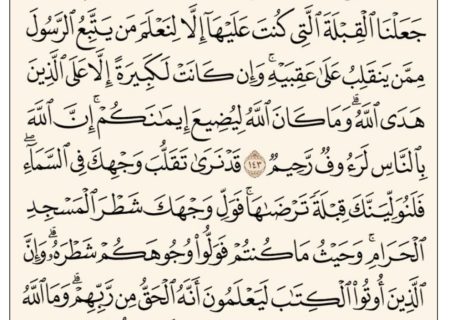 جَعَلۡنَا ٱلۡقِبۡلَةَ ٱلَّتِي كُنتَ عَلَيۡهَآ إِلَّا لِنَعۡلَمَ مَن يَتَّبِعُ ٱلرَّسُولَ
مِمَّن يَنقَلِبُ عَلَىٰ عَقِبَيۡهِۚ وَإِن كَانَتۡ لَكَبِيرَةً إِلَّا عَلَى ٱلَّذِينَ
هَدَى ٱللَّهُۗ وَمَا كَانَ ٱللَّهُ لِيُضِيعَ إِيمَٰنَكُمۡۚ إِنَّ ٱللَّهَ
بِٱلنَّاسِ لَرَءُوفٞ رَّحِيمٞ ١٤٣ قَدۡ نَرَىٰ تَقَلُّبَ وَجۡهِكَ فِي ٱلسَّمَآءِۖ
فَلَنُوَلِّيَنَّكَ قِبۡلَةٗ تَرۡضَىٰهَاۚ فَوَلِّ وَجۡهَكَ شَطۡرَ ٱلۡمَسۡجِدِ
ٱلۡحَرَامِۚ وَحَيۡثُ مَا كُنتُمۡ فَوَلُّواْ وُجُوهَكُمۡ شَطۡرَهُۥۗ وَإِنَّ
ٱلَّذِينَ أُوتُواْ ٱلۡكِتَٰبَ لَيَعۡلَمُونَ أَنَّهُ ٱلۡحَقُّ مِن رَّبِّهِمۡۗ وَمَا ٱللَّهُ